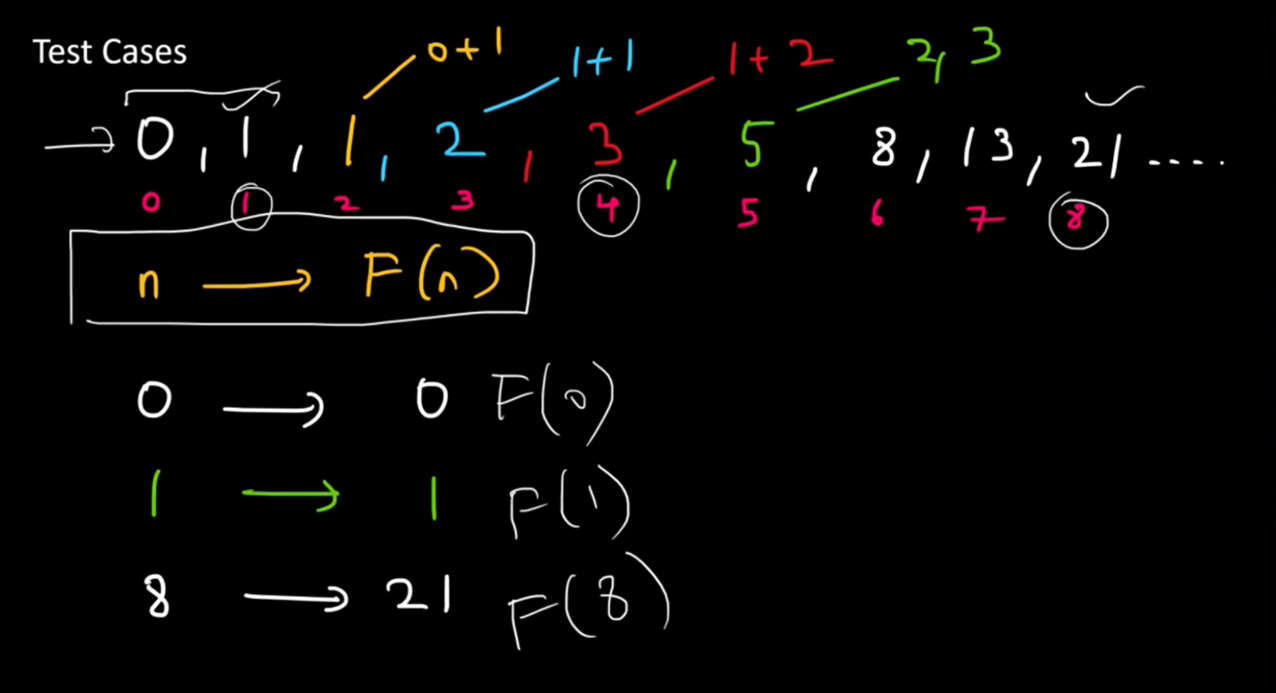 Test Cases
0+1 1+1 1+2 2, 3
0, 1, 1, 2, 3, 5, 8, 13, 21....
0 1 2 3 4 5 6 7 8
n → F(n)
0 → 0 F(0)
1 → 1 F(1)
8 → 21 F(8)